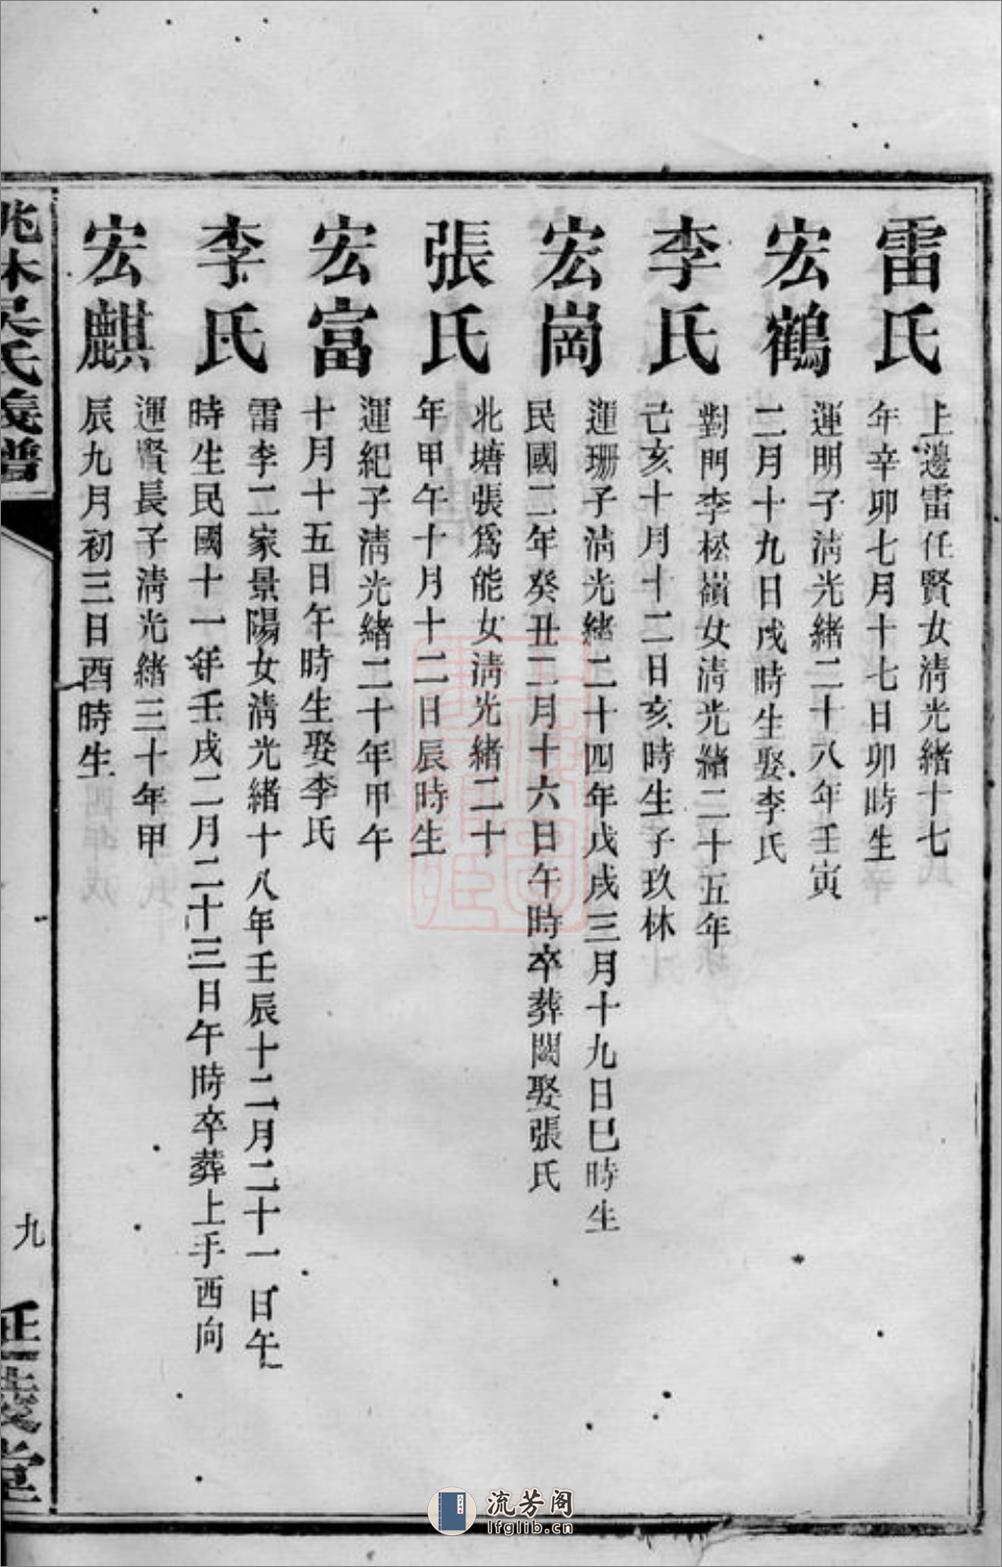 雷氏
上邊雷任賢女淸光緒十七
年辛卯七月十七日卯時生
宏鶴
運明子淸光緒二十八年壬寅
二月十九日戌時生娶李氏
李氏
對門李松嶺女淸光緒二十五年
己亥十月十二日亥時生子玖林
宏崗
運珊子淸光緒二十四年戊戌三月十九日巳時生
民國二年癸丑二月十六日午時卒葬闕娶張氏
張氏
北塘張爲能女淸光緒二十
年甲午十月十二日辰時生
宏富
運紀子淸光緒二十年甲午
十月十五日午時生娶李氏
李氏
雷李二家景陽女淸光緒十八年壬辰十二月二十一日午
時生民國十一年壬戌二月二十三日午時卒葬上手西向
宏麒
運賢長子淸光緒三十年甲
辰九月初三日酉時生
林吳氏義譜
九
堂
流芳阁
lfglib.cn